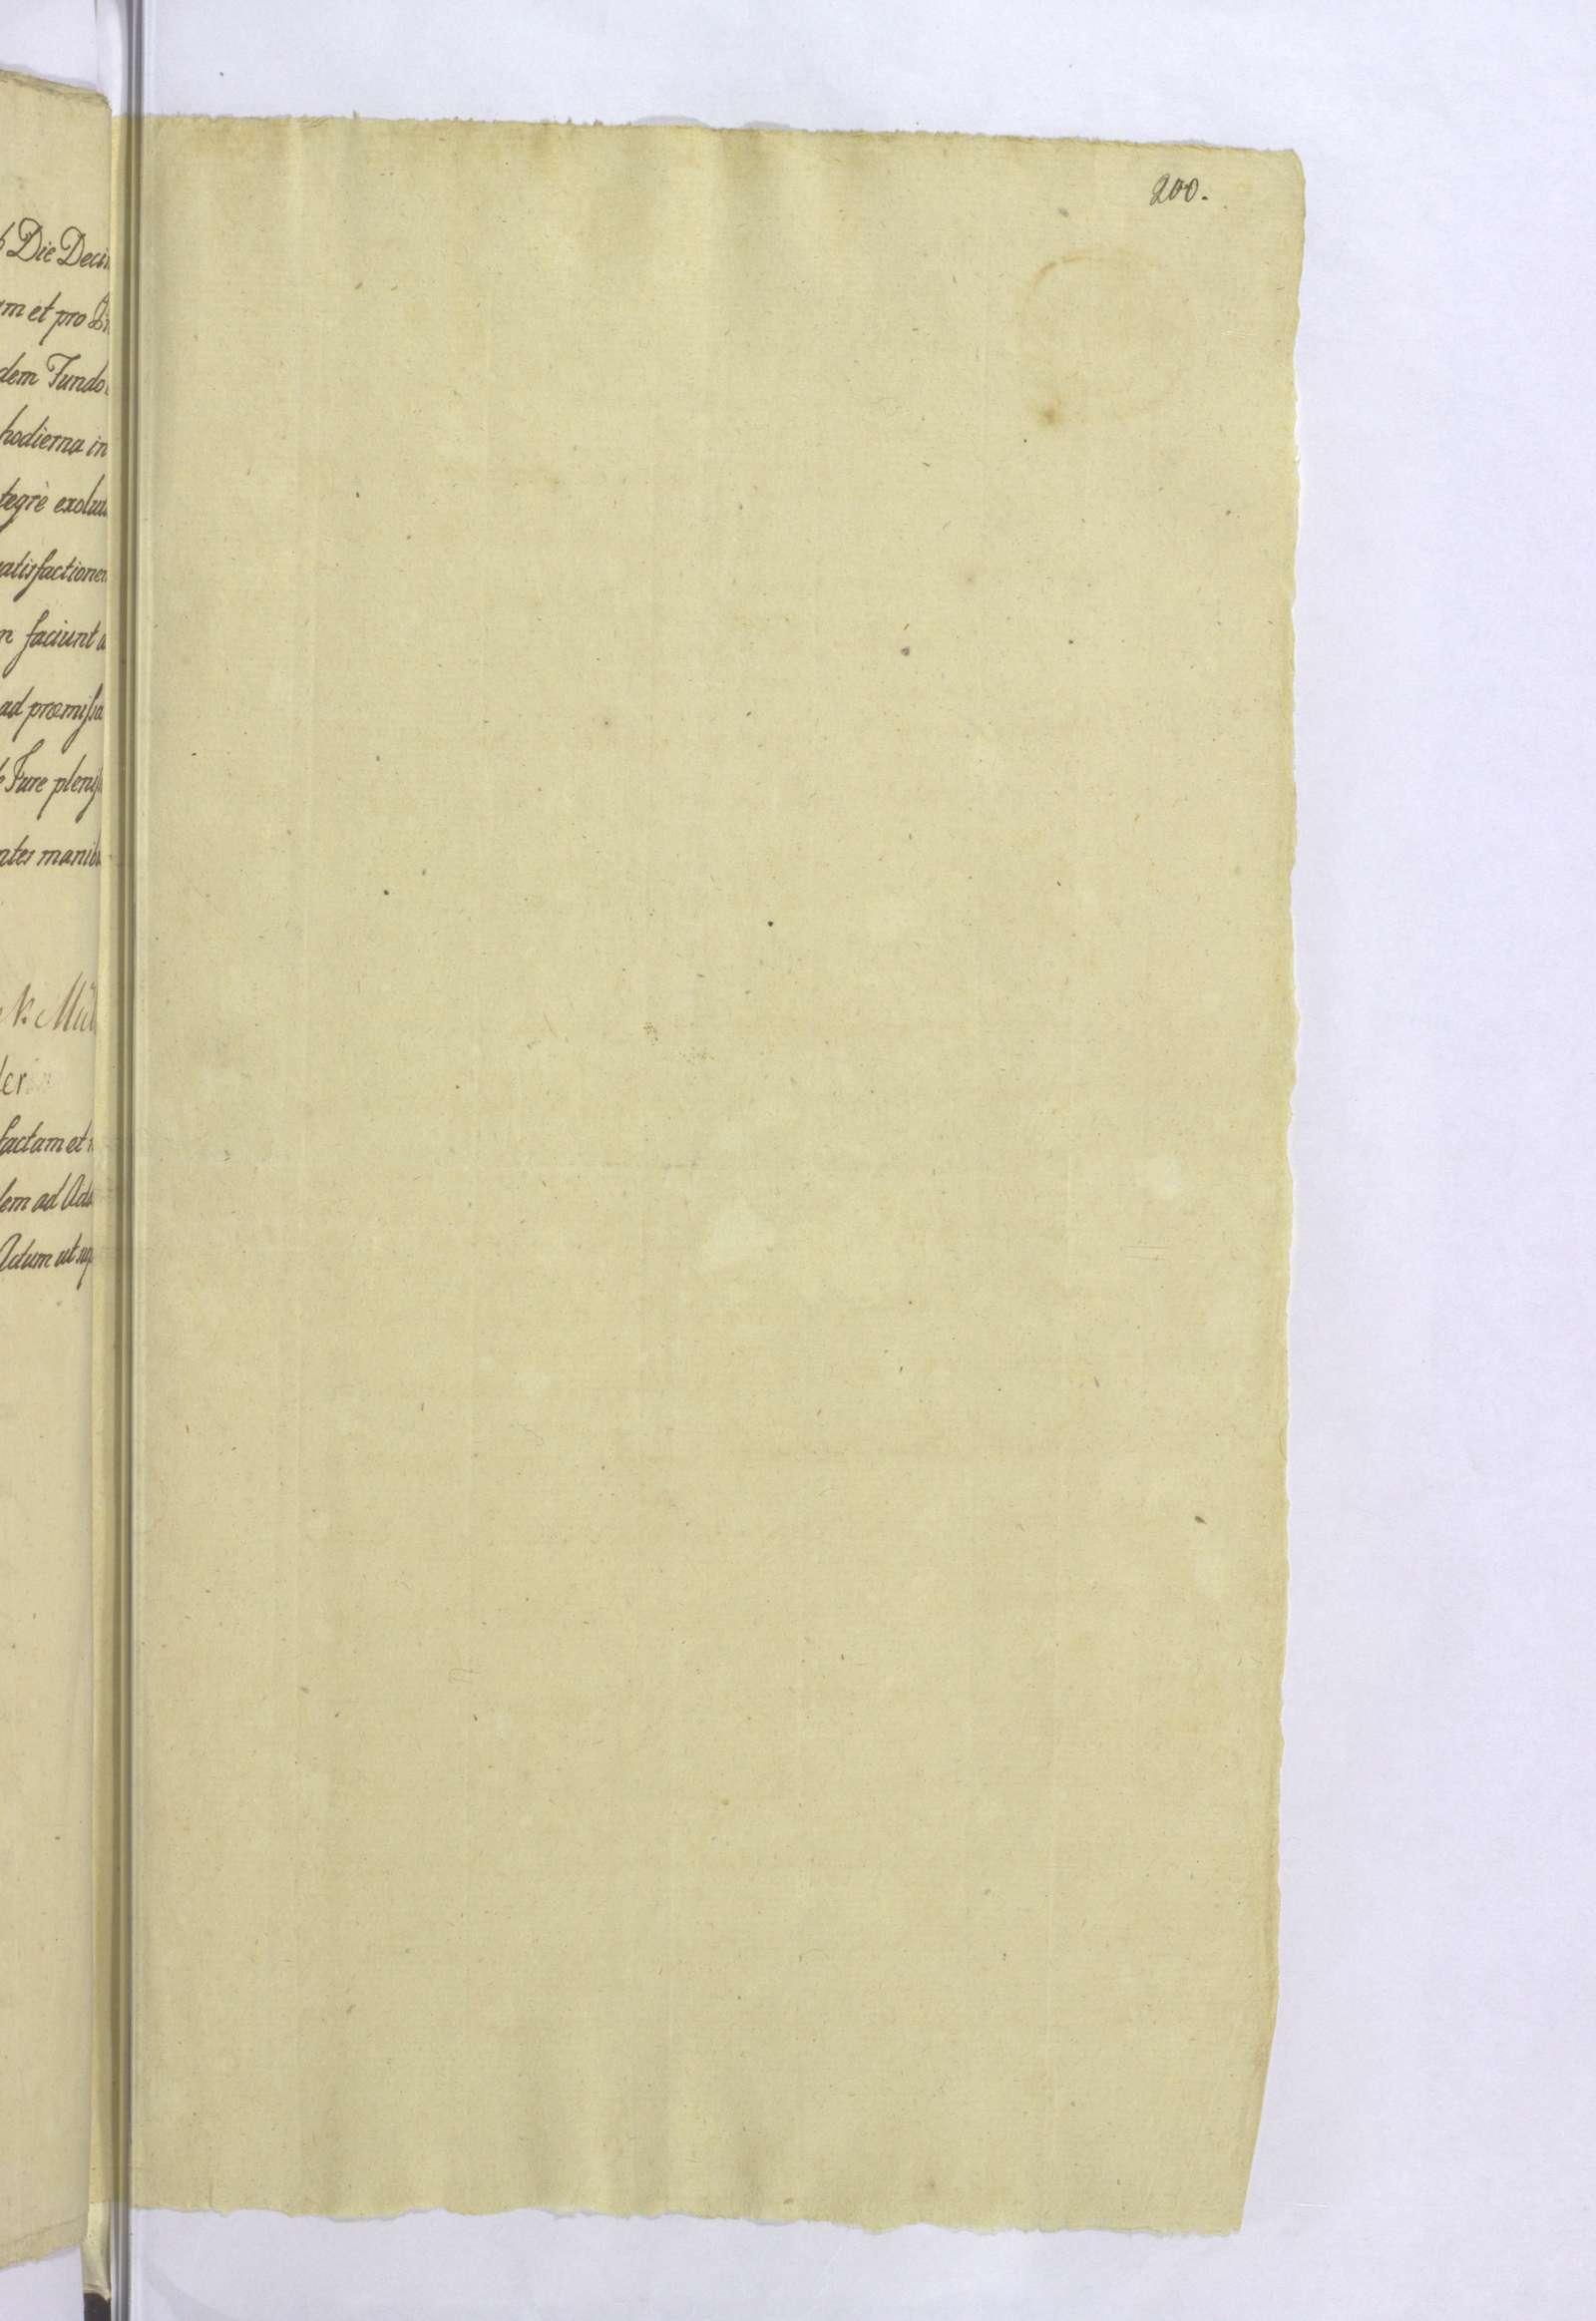 Die Decim
m et pro
dem Fundo
hodierna in
tegrè exolut
atisfactionem
n faciunt a
ad præmissa
Jure pleniss
ntes manib
factam et
em ad Acta
Actum ut sup
200.